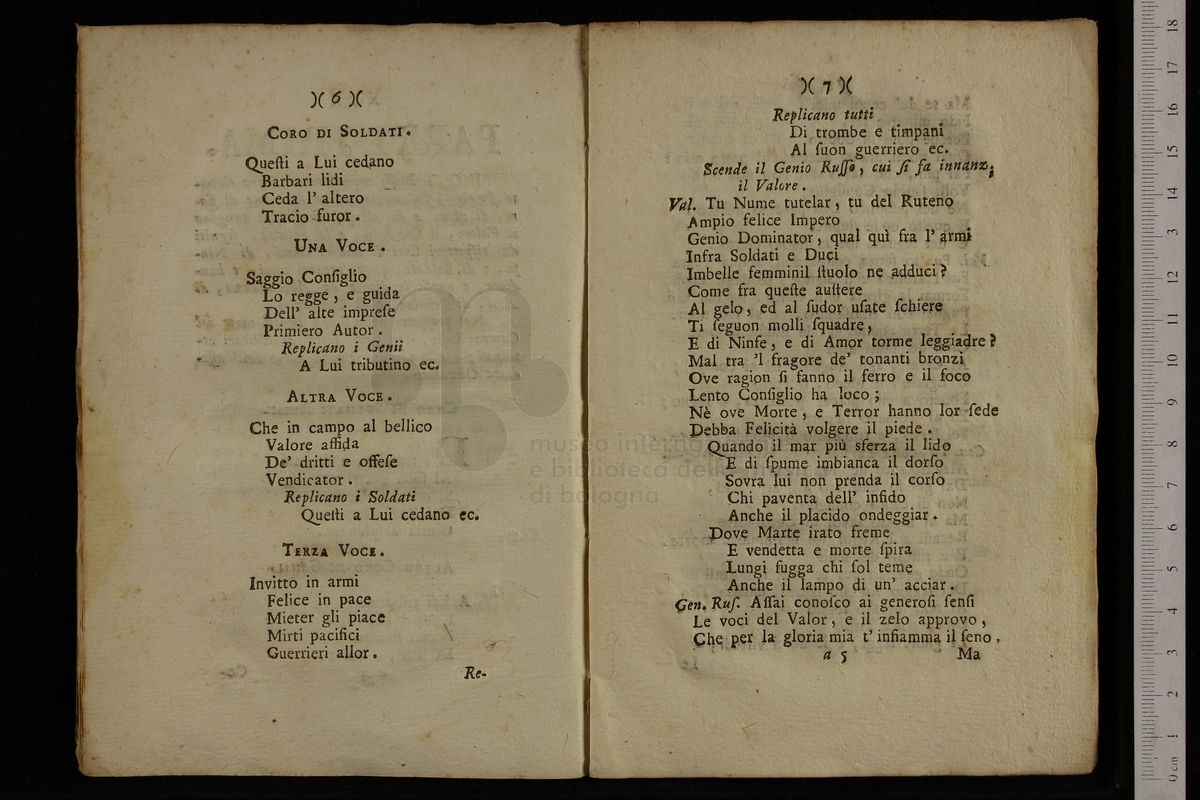 )( 6 )(
CORO DI SOLDATI.
Queſti a Lui cedano
Barbari lidi
Ceda l' altero
Tracio furor.
UNA VOCE.
Saggio Conſiglio
Lo regge, e guida
Dell' alte impreſe
Primiero Autor.
Replicano i Genii
A Lui tributino ec.
ALTRA VOCE.
Che in campo al bellico
Valore affida
De' dritti e offeſe
Vendicator.
Replicano i Soldati
Queſti a Lui cedano ec.
TERZA VOCE.
Invitto in armi
Felice in pace
Mieter gli piace
Mirti pacifici
Guerrieri allor.
Re-
)( 7 )(
Replicano tutti
Di trombe e timpani
Al ſuon guerriero ec.
Scende il Genio Ruſſo, cui ſi fa innanzi
il Valore.
Val. Tu Nume tutelar, tu del Ruteno
Ampio felice Impero
Genio Dominator, qual quì fra l' armi
Infra Soldati e Duci
Imbelle femminil ſtuolo ne adduci?
Come fra queſte auſtere
Al gelo, ed al ſudor uſate ſchiere
Ti ſeguon molli ſquadre,
E di Ninfe, e di Amor torme leggiadre?
Mal tra 'l fragore de' tonanti bronzi
Ove ragion ſi fanno il ferro e il foco
Lento Conſiglio ha loco;
Nè ove Morte, e Terror hanno lor ſede
Debba Felicità volgere il piede.
Quando il mar più sferza il lido
E di ſpume imbianca il dorſo
Sovra lui non prenda il corſo
Chi paventa dell' infido
Anche il placido ondeggiar.
Dove Marte irato freme
E vendetta e morte ſpira
Lungi fugga chi ſol teme
Anche il lampo di un' acciar.
Gen. Ruſ. Aſſai conoſco ai generoſi ſenſi
Le voci del Valor, e il zelo approvo,
Che per la gloria mia t' infiamma il ſeno,
a 5 Ma
museo interna
e biblioteca della
di bologna
0 cm 1 2 3 4 5 6 7 8 9 10 11 12 13 14 15 16 17 18